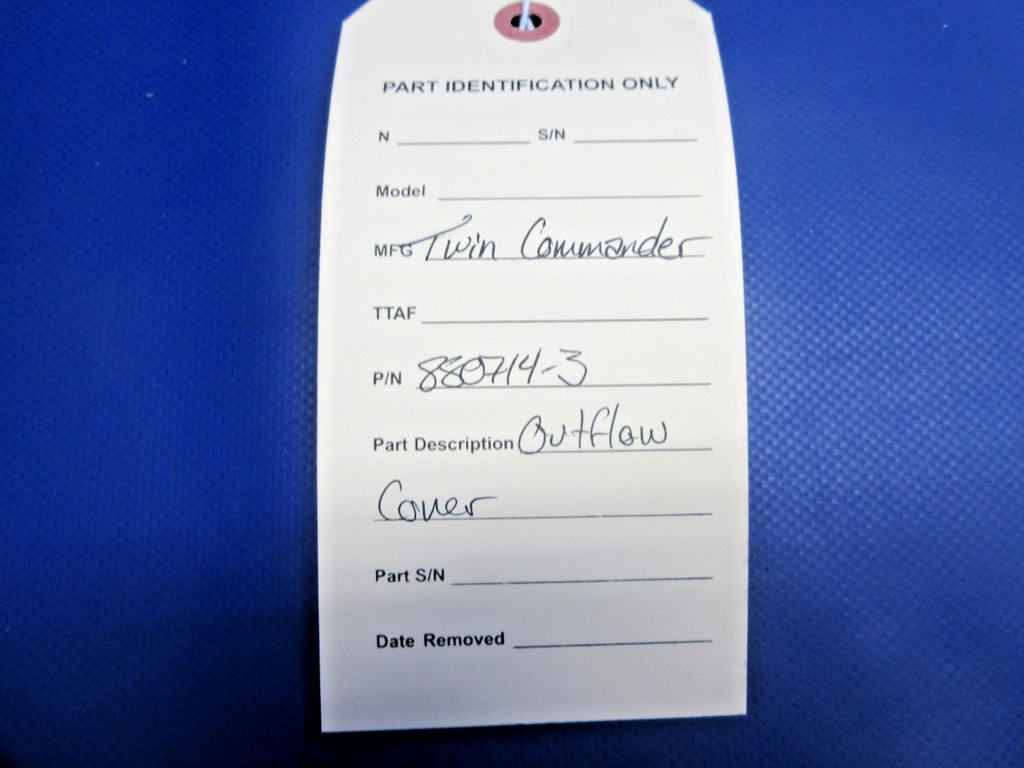 PART IDENTIFICATION ONLY
N S/N
Model
MFG Twin Commander
TTAF
P/N 880714-3
Part Description Outflow
Cover
Part S/N
Date Removed